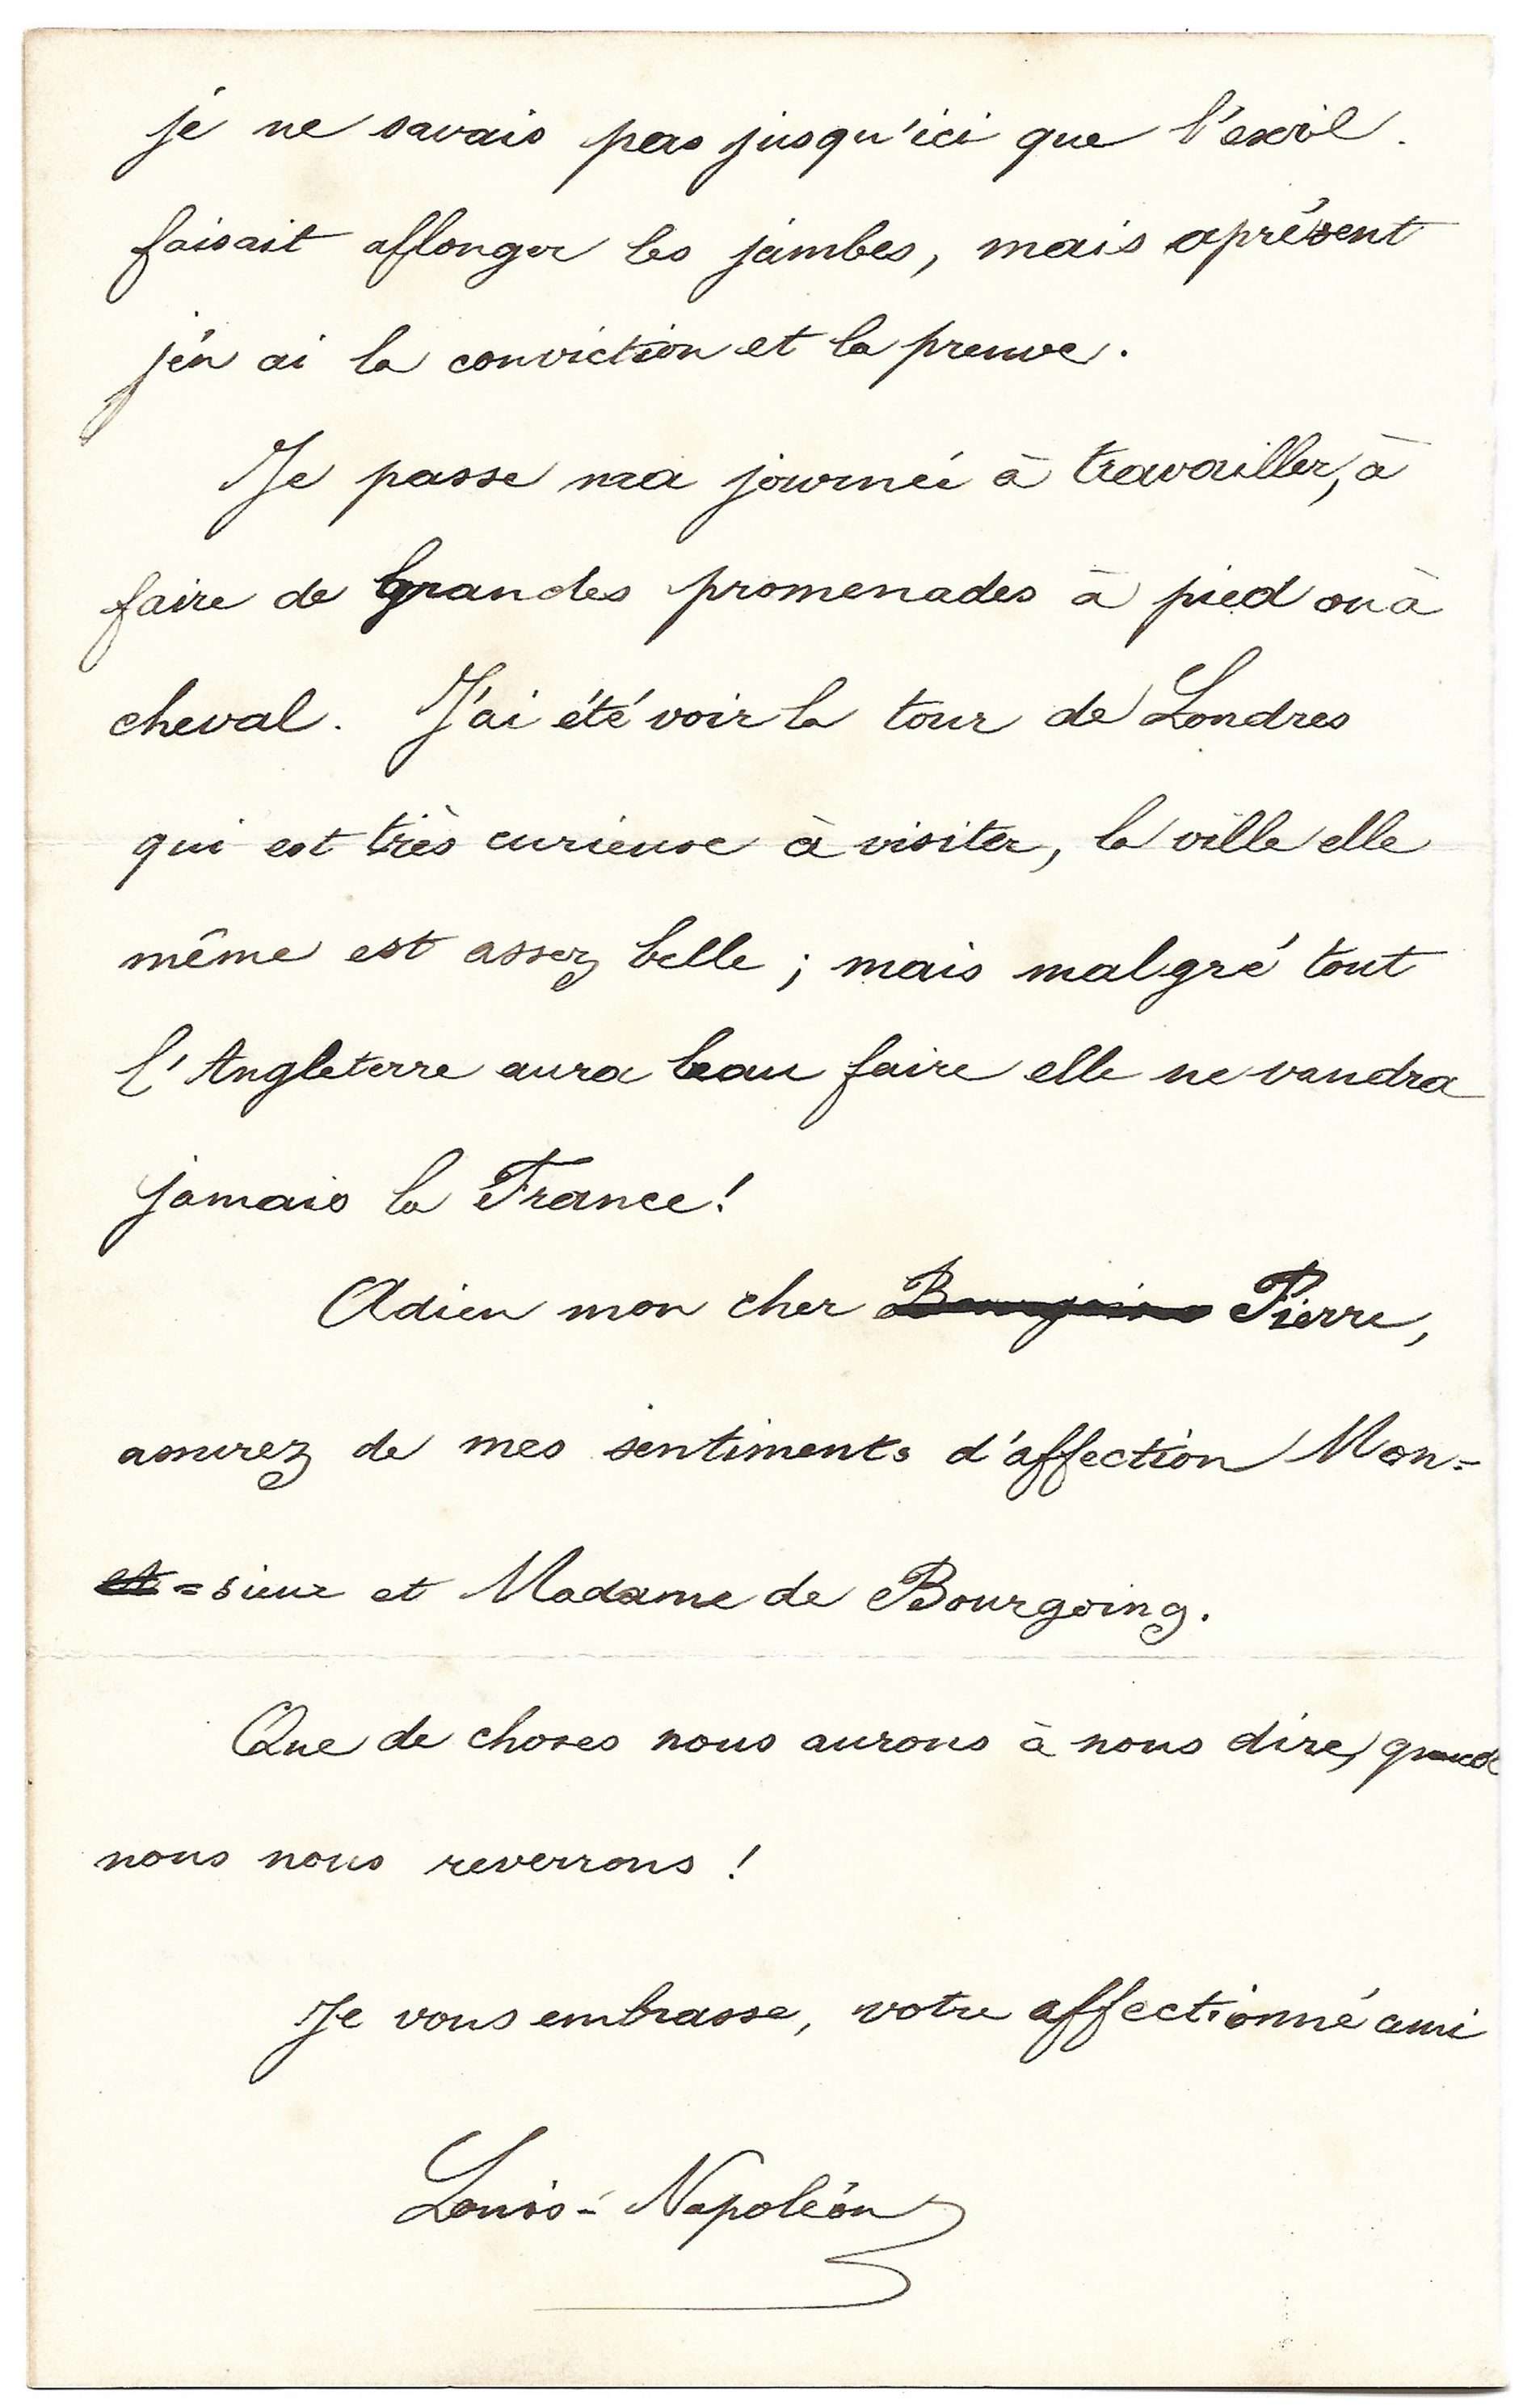 je ne savais pas jusqu'ici que l'exil
faisait allonger les jambes, mais aprésent
j'en ai la conviction et la preuve.
Je passe ma journée à travailler, à
faire de grandes promenades à pied ou à
cheval. J'ai été voir la tour de Londres
qui est très curieuse à visiter, la ville elle
même est assez belle ; mais malgré tout
l'Angleterre aura beau faire elle ne vaudra
jamais la France!
Adieu mon cher Pierre,
assurez de mes sentiments d'affection Mon=
=sieur et Madame de Bourgoing.
Que de choses nous aurons à nous dire, quand
nous nous reverrons !
Je vous embrasse, votre affectionné ami
Louis-Napoléon